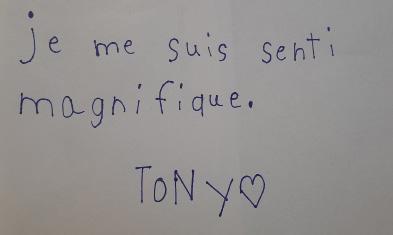 je me suis senti
magnifique.
TONY♡